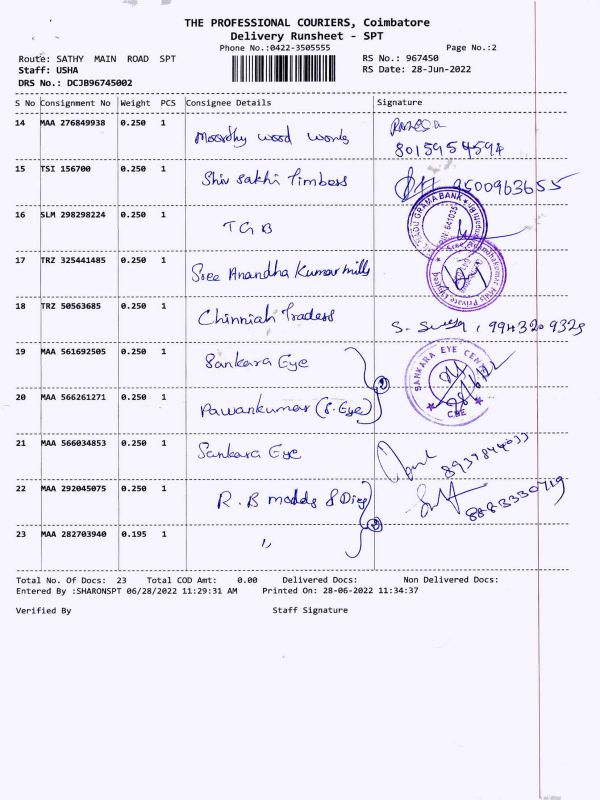 THE PROFESSIONAL COURIERS, Coimbatore
Delivery Runsheet - SPT
Phone No.:0422-3505555 Page No.:2
Route: SATHY MAIN ROAD SPT RS No.: 967450
Staff: USHA RS Date: 28-Jun-2022
DRS No.: DCJB96745002
S No Consignment No Weight PCS Consignee Details Signature
14 MAA 276849938 0.250 1 Moorthy wood works
8015954594
15 TSI 156700 0.250 1 Shiv sakthi Timbers 9500963655
16 SLM 298298224 0.250 1 TGB
GRAMA BANK
17 TRZ 325441485 0.250 1 Sree Anandha Kumar mills
18 TRZ 50563685 0.250 1 Chinniah Traders
S. 9943209329
19 MAA 561692505 0.250 1 Sankara Eye
SANKARA EYE CENT
CBE
20 MAA 566261271 0.250 1 Pawankumar (S. Eye) 2
21 MAA 566034853 0.250 1 Sankara Eye
8939844033
22 MAA 292045075 0.250 1 R.B models & Dies
8883330719
23 MAA 282703940 0.195 1 "
Total No. Of Docs: 23 Total COD Amt: 0.00 Delivered Docs: Non Delivered Docs:
Entered By :SHARONSPT 06/28/2022 11:29:31 AM Printed On: 28-06-2022 11:34:37
Verified By Staff Signature